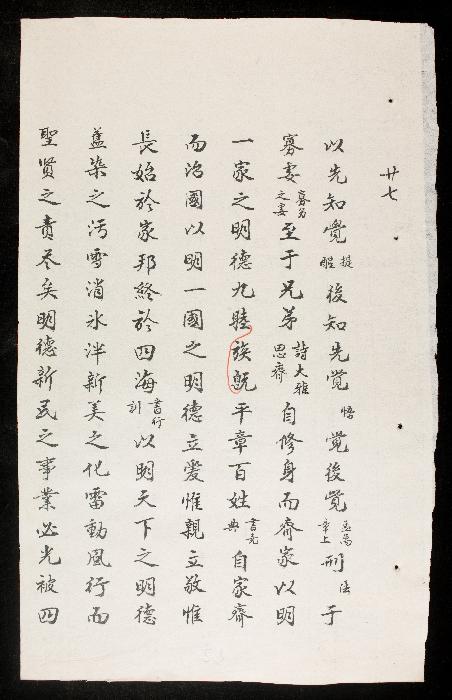 廿七
以先知覺提醒後知先覺悟覺後覺孟萬章上刑法于
寡妻寡君之妻至于兄弟詩大雅思齊自修身而齊家以明
一家之明德九睦族既平章百姓書堯典自家齊
而治國以明一國之明德立愛惟親立敬惟
長始於家邦終於四海書伊訓以明天下之明德
舊染之污雪消氷泮新美之化雷動風行而
聖賢之責尽矣明德新民之事業必光被四